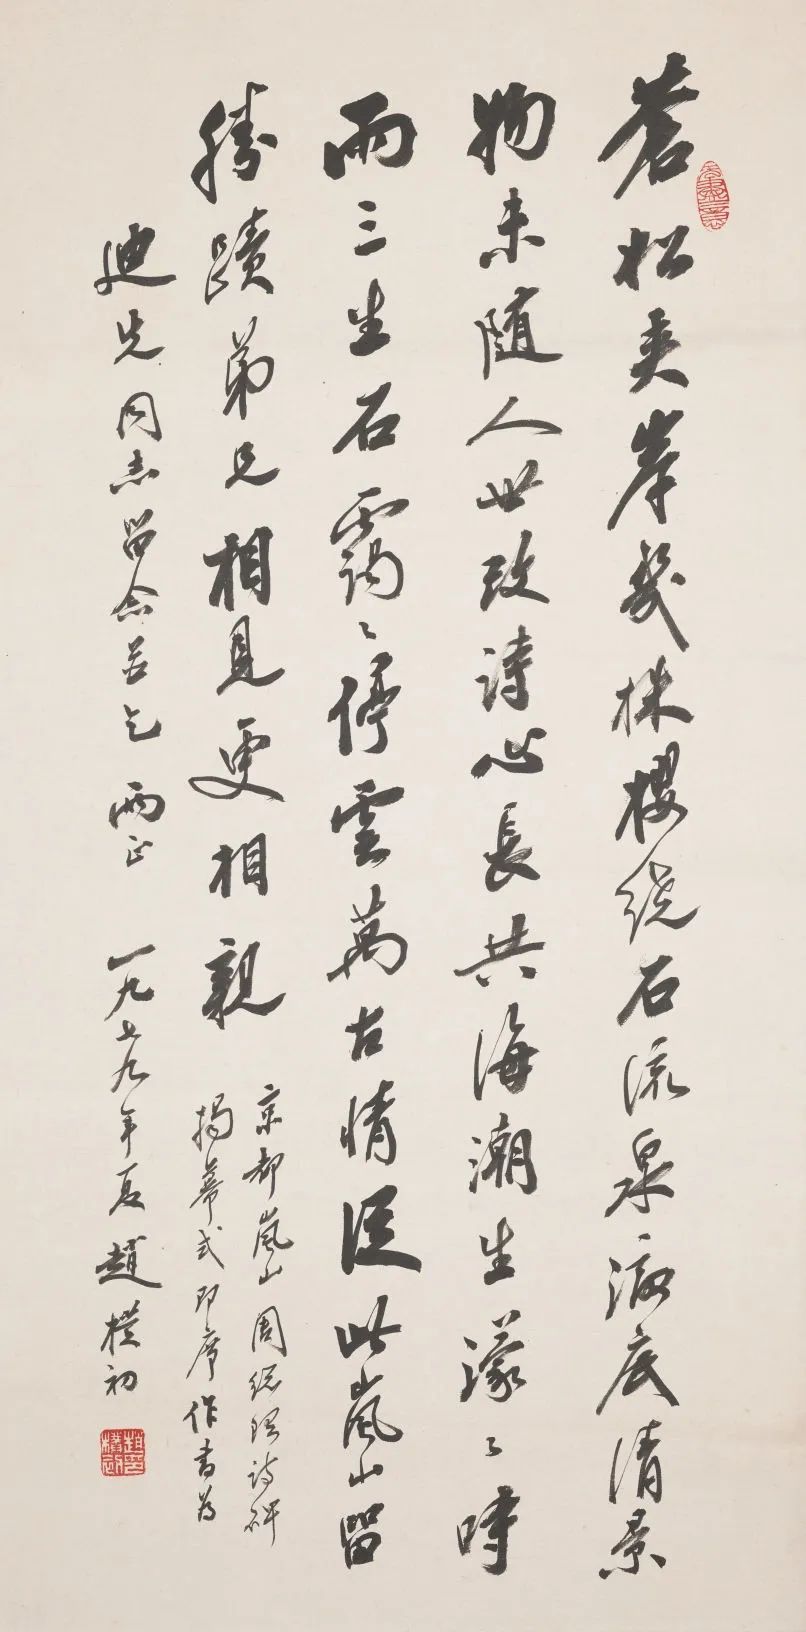 蒼松夹岸几株櫻绕石流泉澈底清景
物未随人世改詩心長共海潮生濛〻時
雨三生石靄〻停雲萬古情從此嵐山留
勝蹟弟兄相見更相親
京都嵐山周總理詩碑
揭幕式即席作書為
迪先同志留念并乞 两正 一九七九年夏趙樸初
趙樸初